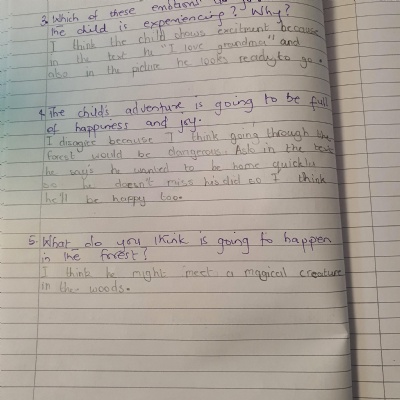 3. Which of these emotions do you
the child is experiencing? Why?
I think the child shows excitment because
in the text he "I love grandma" and
also in the picture he looks ready to go.
4. The child's adventure is going to be full
of happiness and joy.
I disagree because I think going through the
forest would be dangerous. Aslo in the text
he says he wanted to be home quickly
so he doesn't miss his dad so I think
he'll be happy too.
5. What do you think is going to happen
in the forest?
I think he might meet a magicall creature
in the woods.